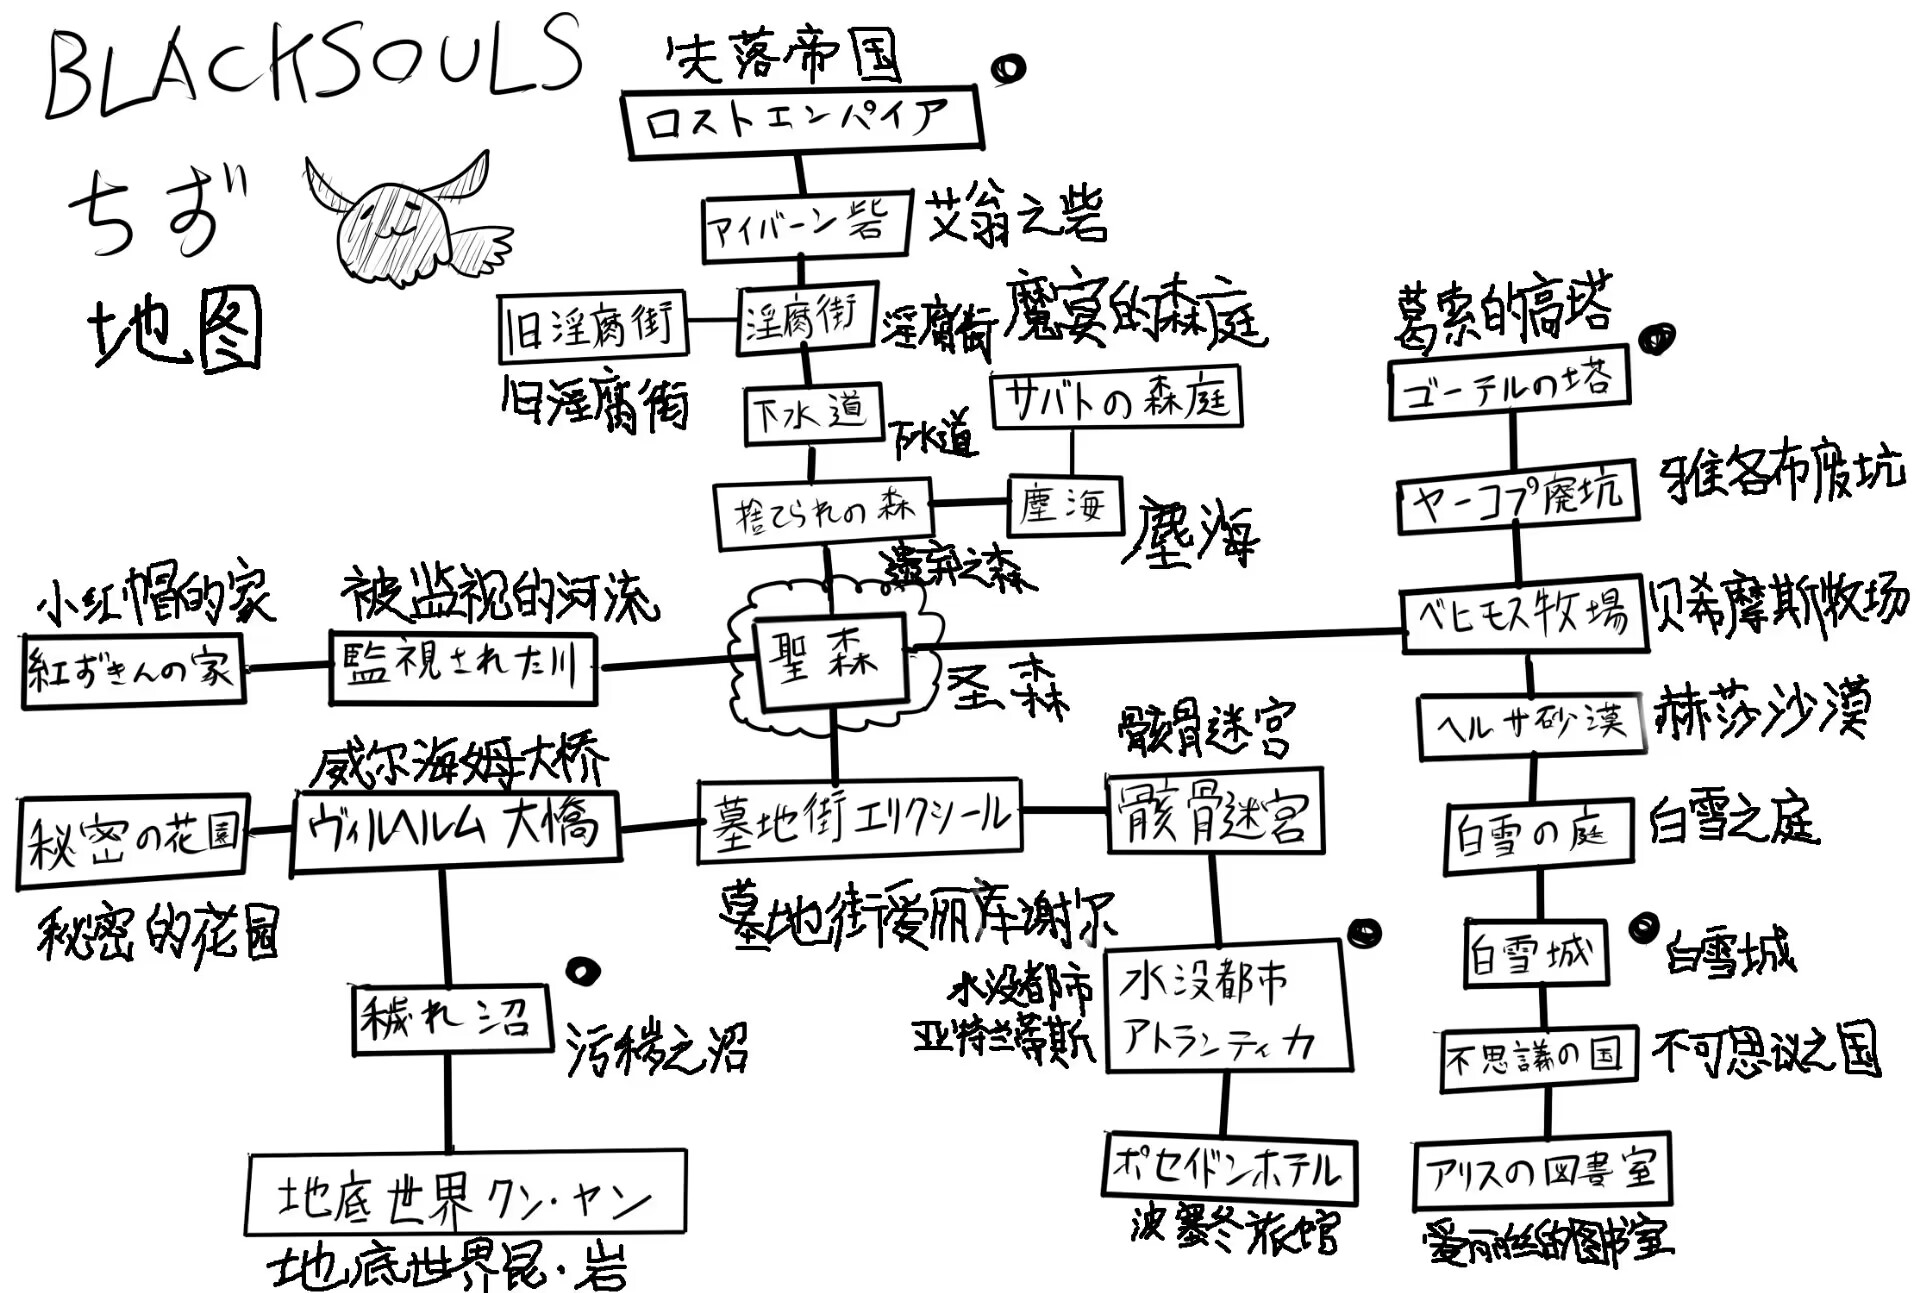 BLACKSOULS
ちず
地图
失落帝国
ロストエンパイア
アイバーン砦
艾翁之砦
旧淫腐街
淫腐街
淫腐街
魔宴的森庭
旧淫腐街
下水道
下水道
サバトの森庭
捨てられの森
遗弃之森
塵海
塵海
葛索的高塔
ゴーテルの塔
ヤーコプ廃坑
雅各布废坑
ベヒモス牧場
贝希摩斯牧场
小红帽的家
紅ずきんの家
被监视的河流
監視された川
聖森
圣森
ヘルサ砂漠
赫莎沙漠
威尔海姆大桥
秘密の花園
ヴィルヘルム大橋
墓地街エリクシール
骸骨迷宮
骸骨迷宫
秘密的花园
墓地街爱丽库谢尔
白雪の庭
白雪之庭
白雪城
白雪城
穢れ沼
污秽之沼
水没都市
亚特兰蒂斯
水没都市
アトランティカ
不思議の国
不可思议之国
地底世界クン・ヤン
地底世界昆·岩
ポセイドンホテル
波塞冬旅馆
アリスの図書室
爱丽丝的图书室